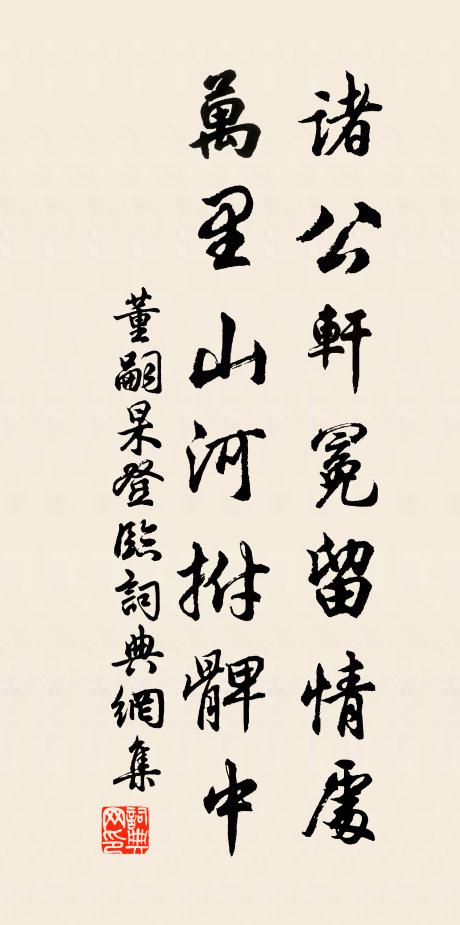 諸公軒冕留情處
萬里山河拊髀中
董嗣杲登臨詞典網集
詞典網印